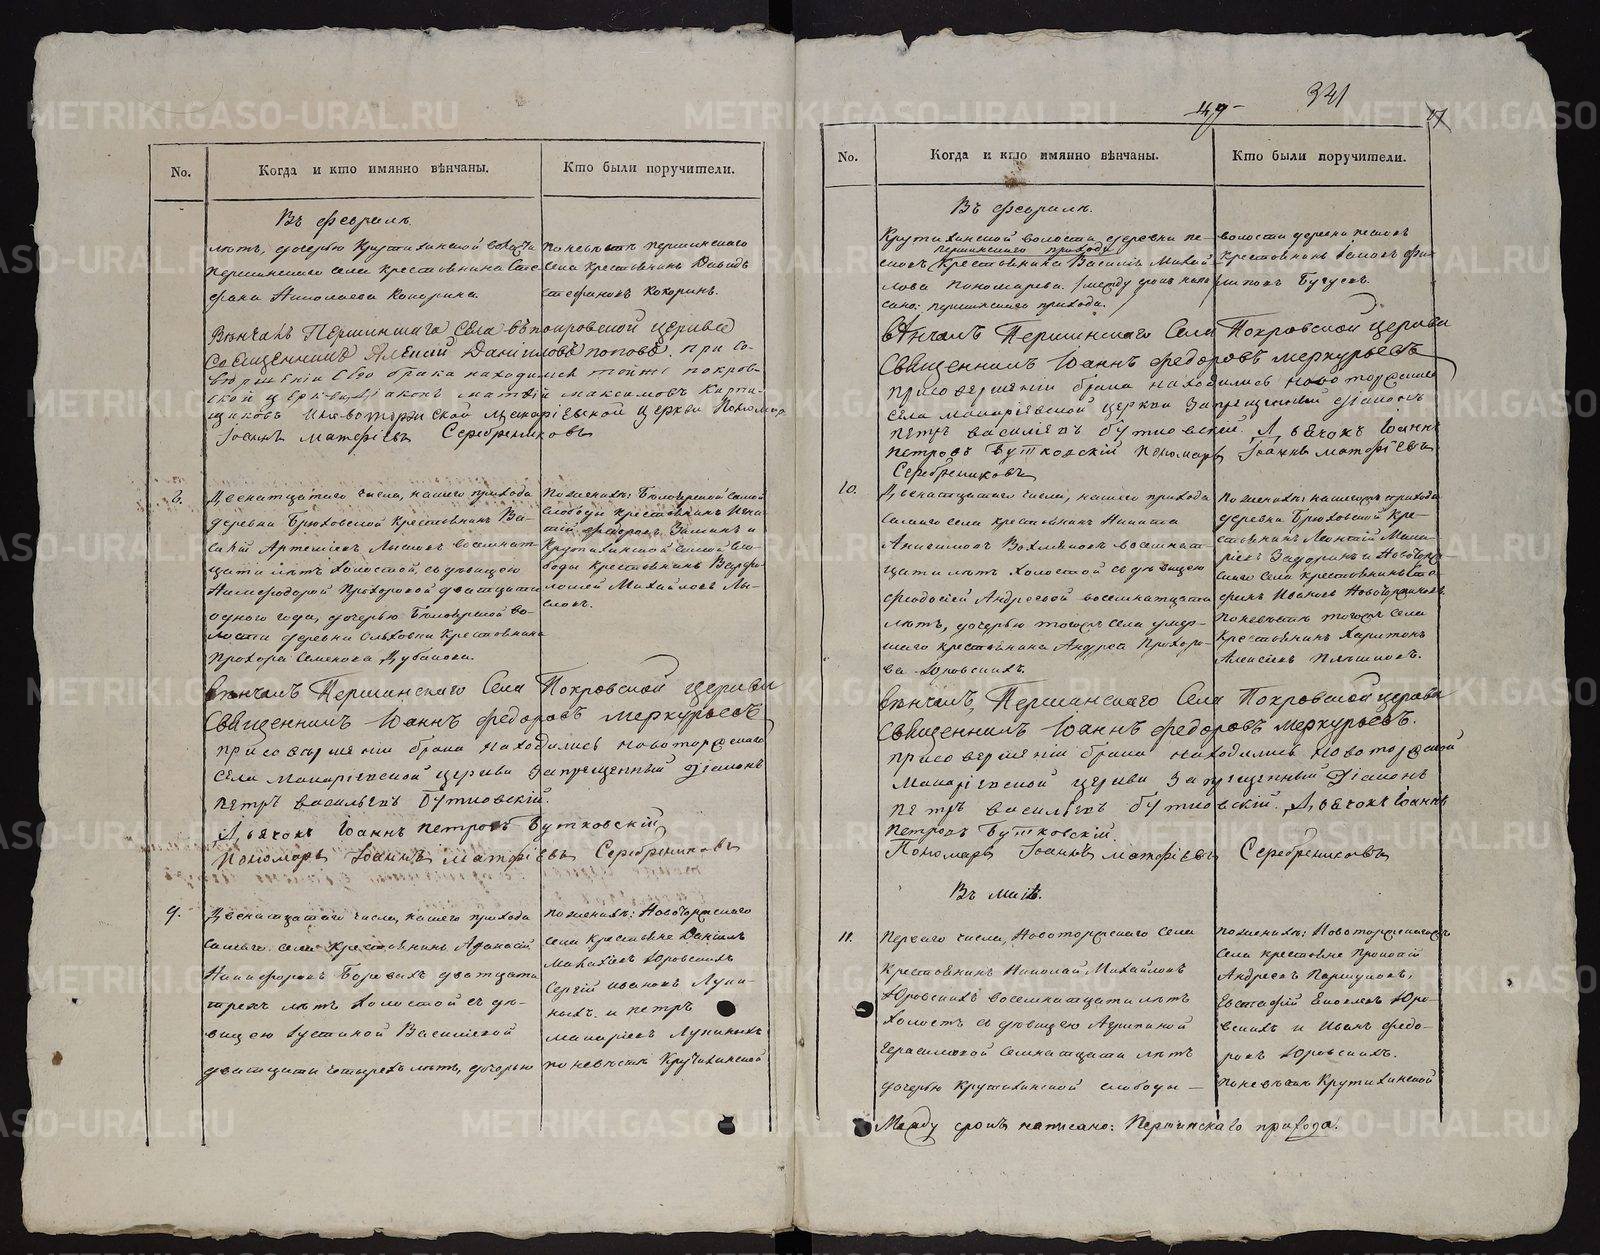 No.
Когда и кто имянно вѣнчаны.
Кто были поручители.
Въ февралѣ.
лѣтъ, дочерью Крутихинской волости
Першинскаго села крестьянина Сте-
фана Николаева Кокорина.
по невѣстѣ першинскаго
села крестьянинъ Давидъ
Стефановъ Кокоринъ.
Вѣнчалъ Першинскаго Села Покровской церкви
Священникъ Алексій Даніиловъ Поповъ. При со-
вершеніи сего брака находились тойже покров-
ской церкви Діаконъ Матвій Максимовъ Кирпи-
щиковъ и Новоторжской Макаріевской церкви Пономарь
Іоаннъ Матфіевъ Серебренниковъ
8.
Двенатцатаго числа, нашего прихода
деревни Брюховской крестьянинъ Ва-
силій Артеміевъ Лысковъ восемнат-
цати лѣтъ холостой, съ дѣвицею
Никифодорой Прохоровой дватцати
одного года, дочерью Белоярской во-
лости деревни Ольховки крестьянина
Прохора Семенова Дубакова.
По женихѣ: Белоярской самой
слободы крестьянинъ Игна-
тій Федоровъ Заминъ и
Крутихинской самой сло-
боды крестьянинъ Варфо-
ломей Михайловъ Лы-
сковъ.
Вѣнчалъ Першинскаго Села Покровской церкви
Священникъ Іоаннъ Федоровъ Меркурьевъ
при совершеніи брака находились новоторжскаго
села Макаріевской церкви запрещенный Діаконъ
Петръ Васильевъ Бутковскій.
Дьячокъ Іоаннъ Петровъ Бутковскій
Пономарь Іоаннъ Матфіевъ Серебрениковъ
9.
Двенатцатаго числа, нашего прихода
самаго села крестьянинъ Афанасій
Никифоровъ Боровыхъ дватцати
трехъ лѣтъ холостой съ дѣ-
вицею Іустиной Василіевой
дватцати четырехъ лѣтъ, дочерью
по женихѣ: Новоторжскаго
села крестьяне Даніилъ
Юровскихъ
Сергій Ивановъ Луки-
ныхъ. и Петръ
Макаріевъ Лукиныхъ
по невѣстѣ Крутихинской
49
341
No.
Когда и кто имянно вѣнчаны.
Кто были поручители.
Въ февралѣ.
Крутихинской волости деревни пе-
першинскаго прихода
сковъ Крестьянина Василія Михай-
лова Пономарева. /между срокъ напи-
сано: першинскаго прихода./
волости деревни песковъ
крестьянинъ
Вѣнчалъ Першинскаго Села Покровской церкви
Священникъ Іоаннъ Федоровъ Меркурьевъ
при совершеніи брака находились новоторжскаго
села Макаріевской церкви Запрещенный діаконъ
Петръ Васильевъ Бутковскій. Дьячокъ Іоаннъ
Петровъ Бутковскій Пономарь Іоаннъ Матфіевъ
Серебрениковъ
10.
Двенатцатаго числа, нашего прихода
самаго села крестьянинъ Никита
Анисимовъ восемнат-
цати лѣтъ холостой съ дѣвицею
Феодосіей Андреевой восемнатцати
лѣтъ, дочерью тогожъ села умер-
шаго крестьянина Андрея Прохоро-
ва Юровскихъ.
По женихѣ: нашегожъ прихода
деревни Брюховской кре-
стьянинъ Леонтій Мака-
ріевъ Задоринъ и Новоторж-
скаго села крестьянинъ
Ивановъ Новоторженовъ
по невѣстѣ тогожъ села
крестьянинъ Харитонъ
Алексіевъ Плѣшковъ.
Вѣнчалъ, Першинскаго Села Покровской церкви
Священникъ Іоаннъ Федоровъ Меркурьевъ.
при совершеніи брака находились Новоторжской
Макаріевской церкви Запрещенный Діаконъ
Петръ Васильевъ Бутковскій. Дьячокъ Іоаннъ
Петровъ Бутковскій
Пономарь Іоаннъ Матфіевъ Серебрениковъ
Въ маіѣ.
11.
Перваго числа, Новоторжскаго села
крестьянинъ Николай Михайловъ
Юровскихъ восемнатцати лѣтъ
холостъ съ дѣвицею Агрипиной
Герасимовой семнатцати лѣтъ
дочерью Крутихинской слободы —
по женихѣ: Новоторжскагожъ
села крестьяне Прокопій
Андреевъ Паршуковъ,
Евстафій Юро-
вскихъ и Иванъ Федо-
ровъ Юровскихъ.
по невѣстѣ Крутихинской
Между срокъ написано: Першинскаго прихода.
METRIKI.GASO-URAL.RU